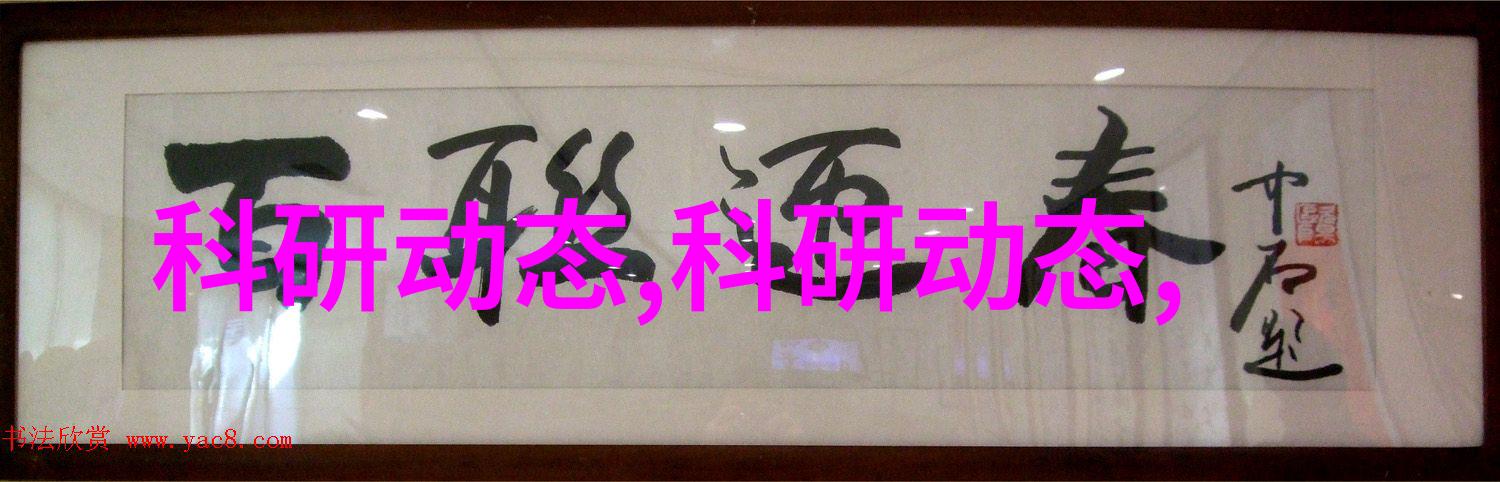 百聯迺春
中石题
科研动态,科研动态,
书法欣赏 www.yac8.com